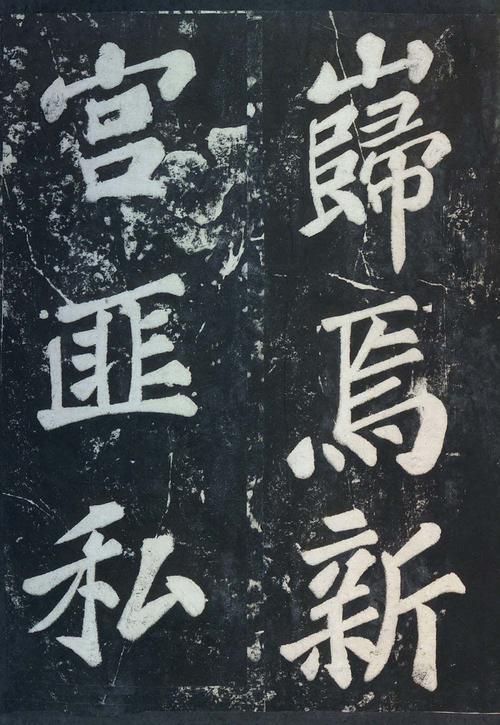 巋焉新
宮匪私